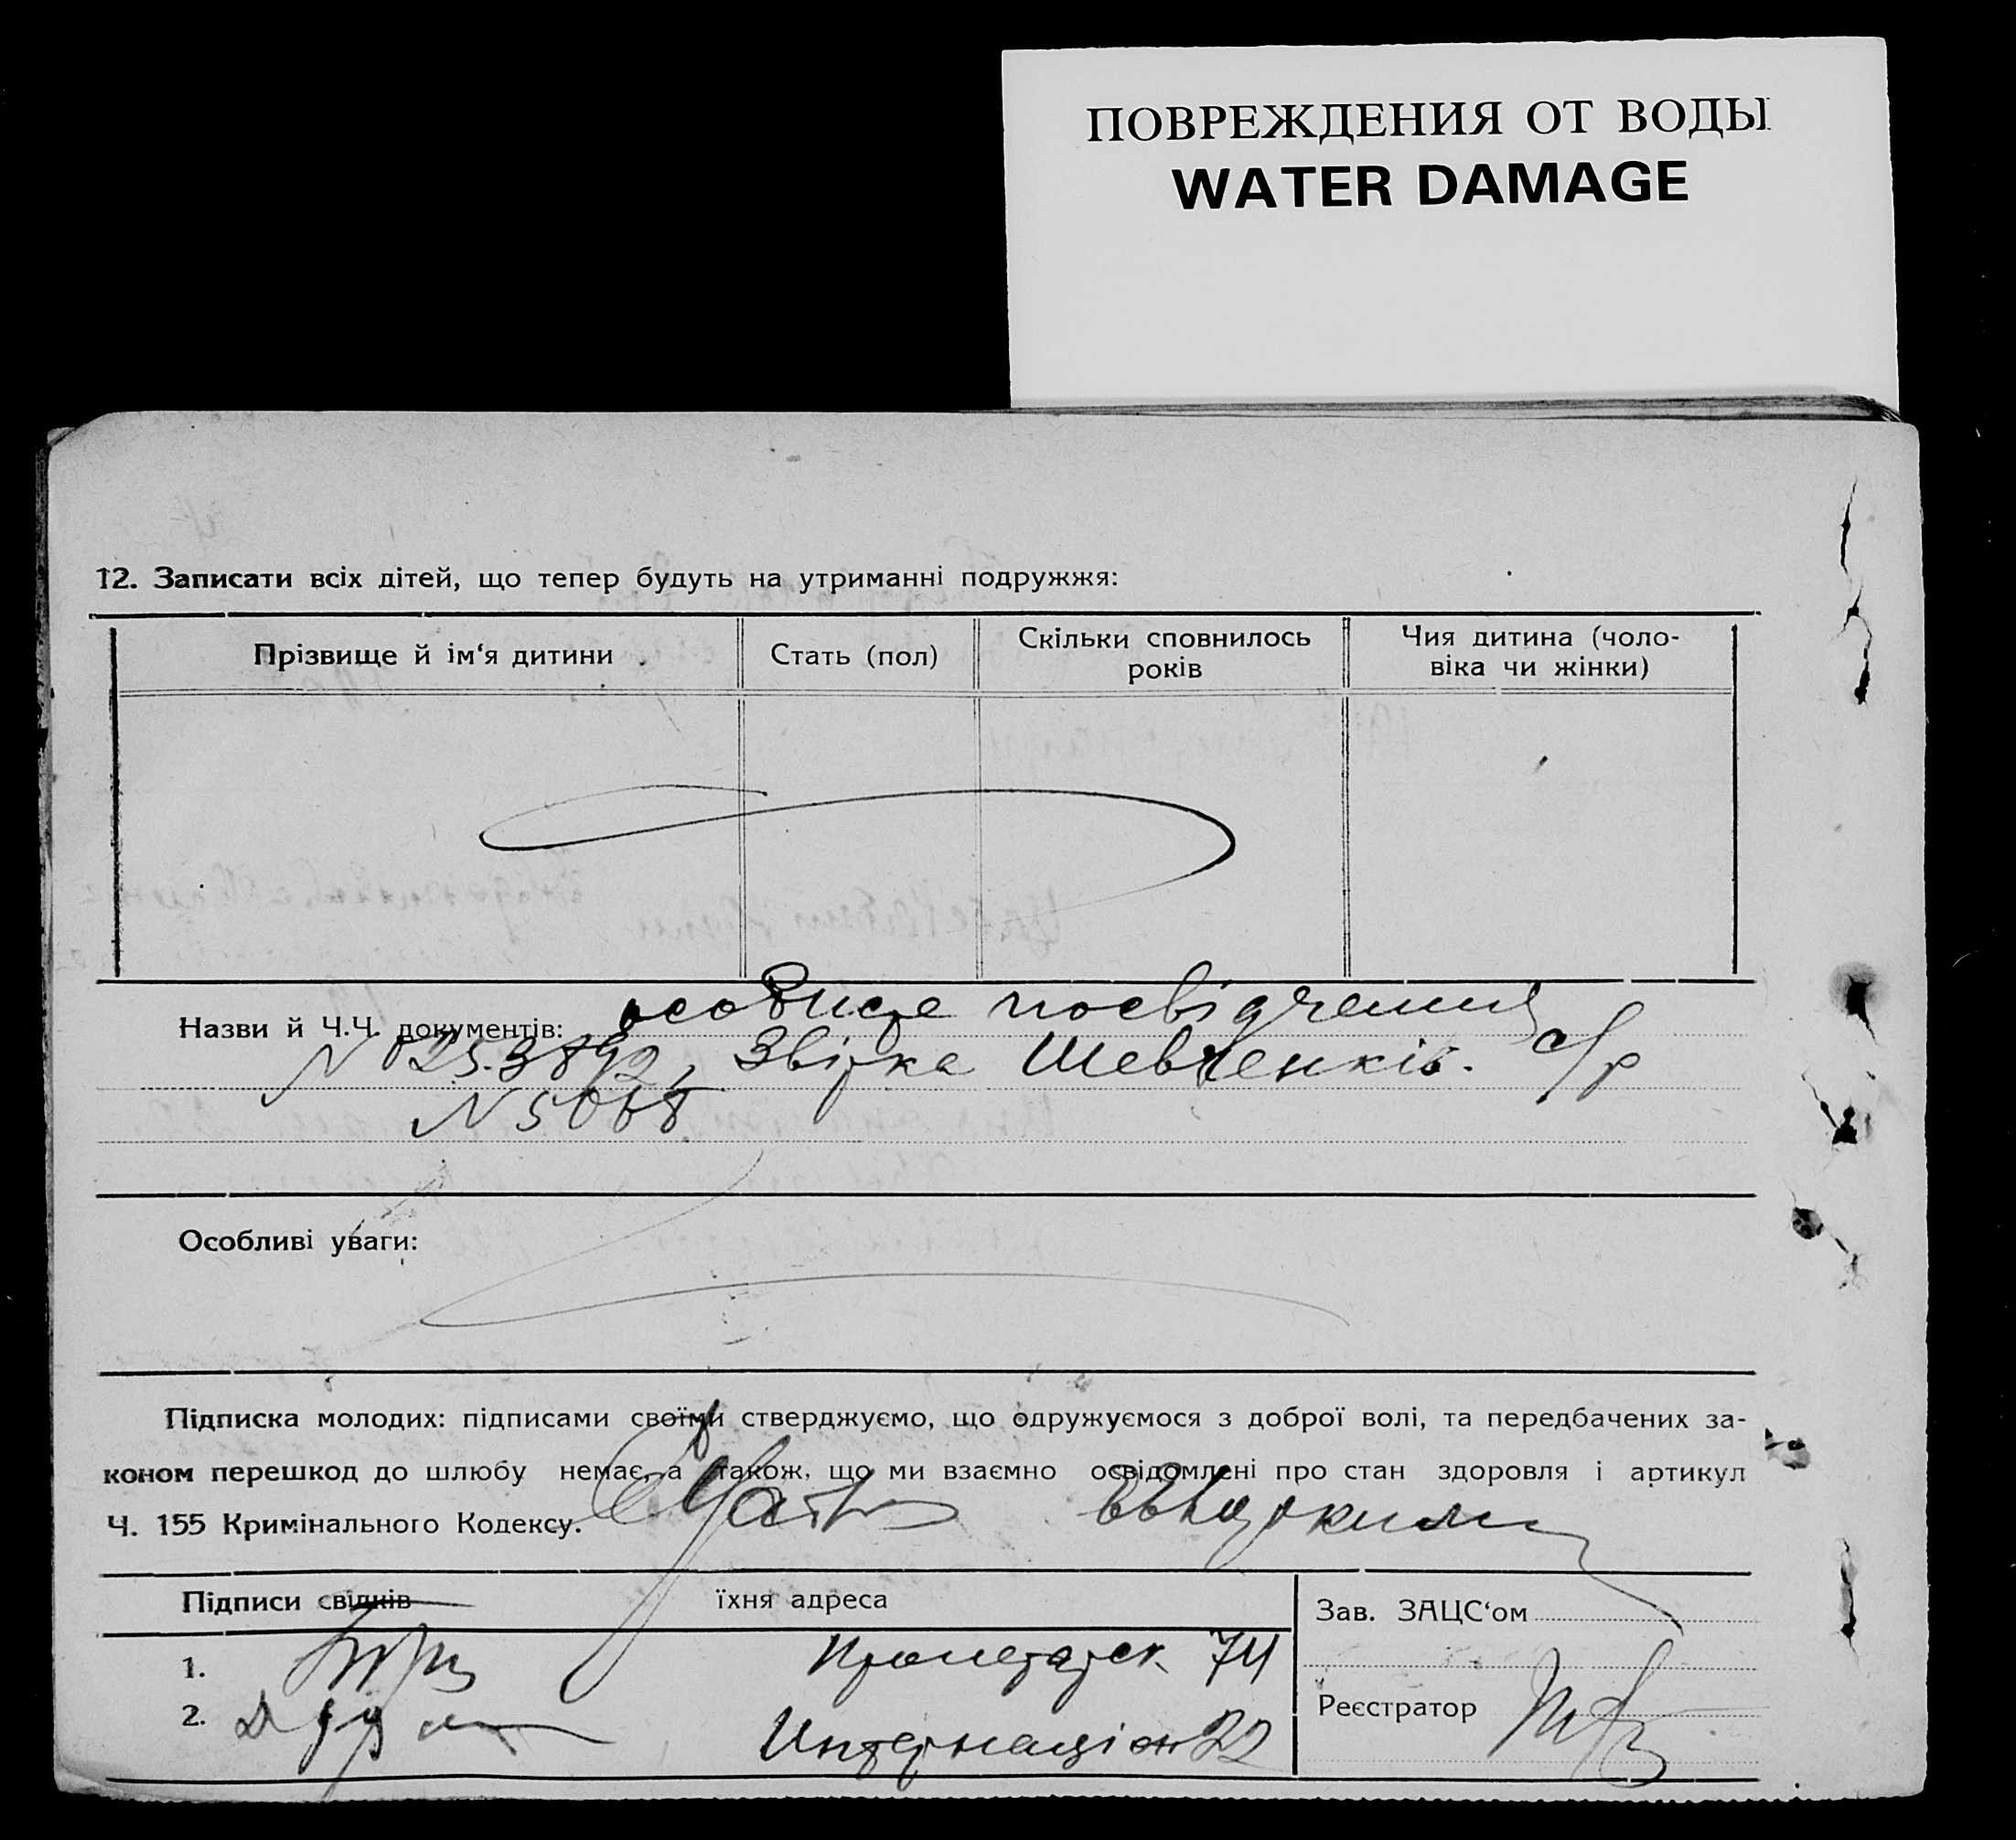 ПОВРЕЖДЕНИЯ ОТ ВОДЫ
WATER DAMAGE
12. Записати всіх дітей, що тепер будуть на утриманні подружжя:
Прізвище й ім‘я дитини
Стать (пол)
Скільки сповнилось
років
Чия дитина (чоло-
віка чи жінки)
Назви й Ч.Ч. документів: особисте посвідчення
N 0253892, Звірка Шевченків. с/р
N 5068
Особливі уваги:
Підписка молодих: підписами своїми стверджуємо, що одружуємося з доброї волі, та передбачених за-
коном перешкод до шлюбу немає, а також, що ми взаємно освідомлені про стан здоровля і артикул
Ч. 155 Кримінального Кодексу.
Підписи свідків їхня адреса
Зав. ЗАЦС‘ом
1. Пролетарск. 74
2. Интернаціон 22
Реєстратор